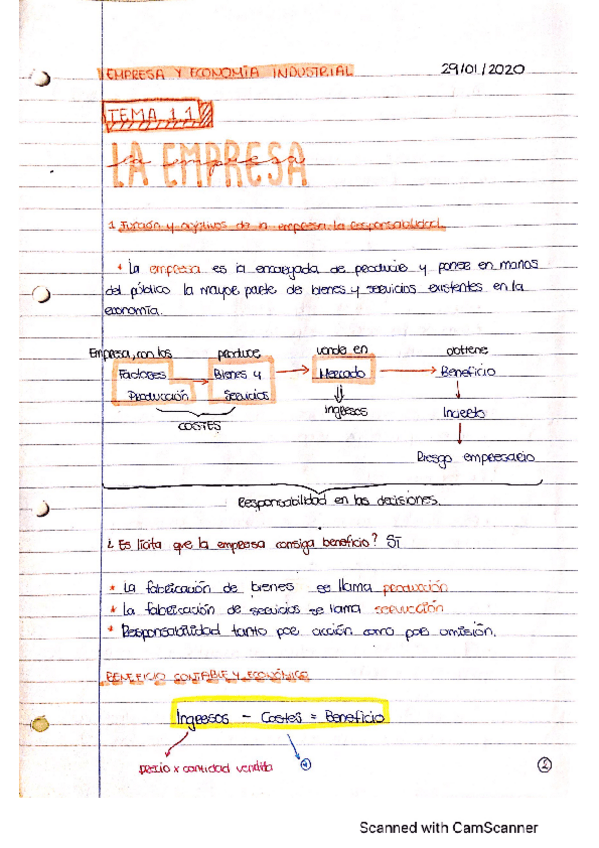 EMPRESA Y ECONOMÍA INDUSTRIAL 29/01/2020
TEMA 1.1
LA EMPRESA
la empresa
1. Función y objetivos de la empresa. La responsabilidad.
* La empresa es la encargada de producir y poner en manos
del público la mayor parte de bienes y servicios existentes en la
economía.
Empresa, con los produce vende en obtiene
Factores → Bienes y → Mercado → Beneficio
Producción Servicios
COSTES Ingresos Incierto
Riesgo empresario
Responsabilidad en las decisiones.
¿Es lícita que la empresa consiga beneficio? SÍ
* La fabricación de bienes se llama producción
* La fabricación de servicios se llama servucción
* Responsabilidad tanto por acción como por omisión.
BENEFICIO CONTABLE Y ECONÓMICO
Ingresos - Costes = Beneficio
precio x cantidad vendida
1
Scanned with CamScanner